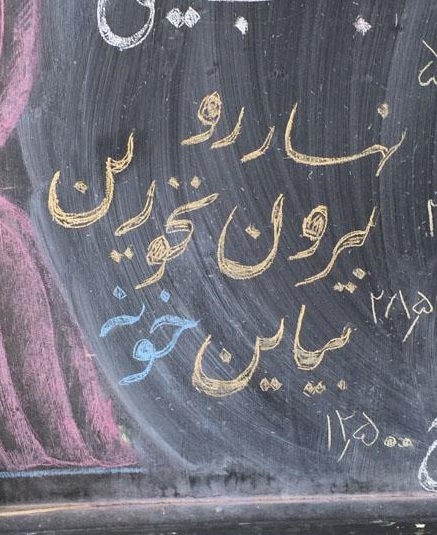 نهار رو
بیرون نخورین
بیاین خونه
۲۸۵
۱۲۵۰۰۰